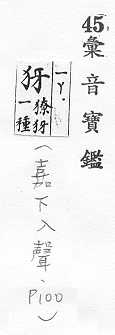 45.彙音寶鑑
一ㄚ.
犽
獠犽
一種
(嘉下入聲、P100)